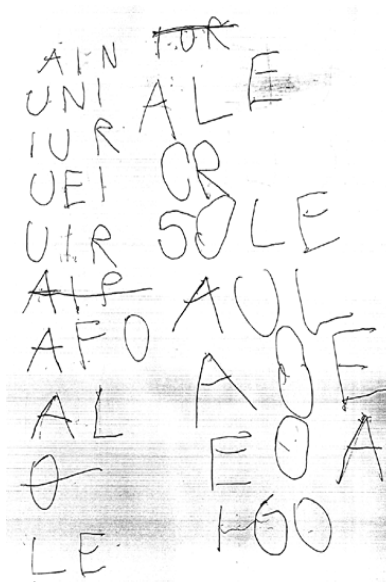 AIN
UNI
IUR
UEI
UIR
AIR
AFO
AL
O
LE
IUR
ALE
OR
SOLE
AUL
AOE
EOA